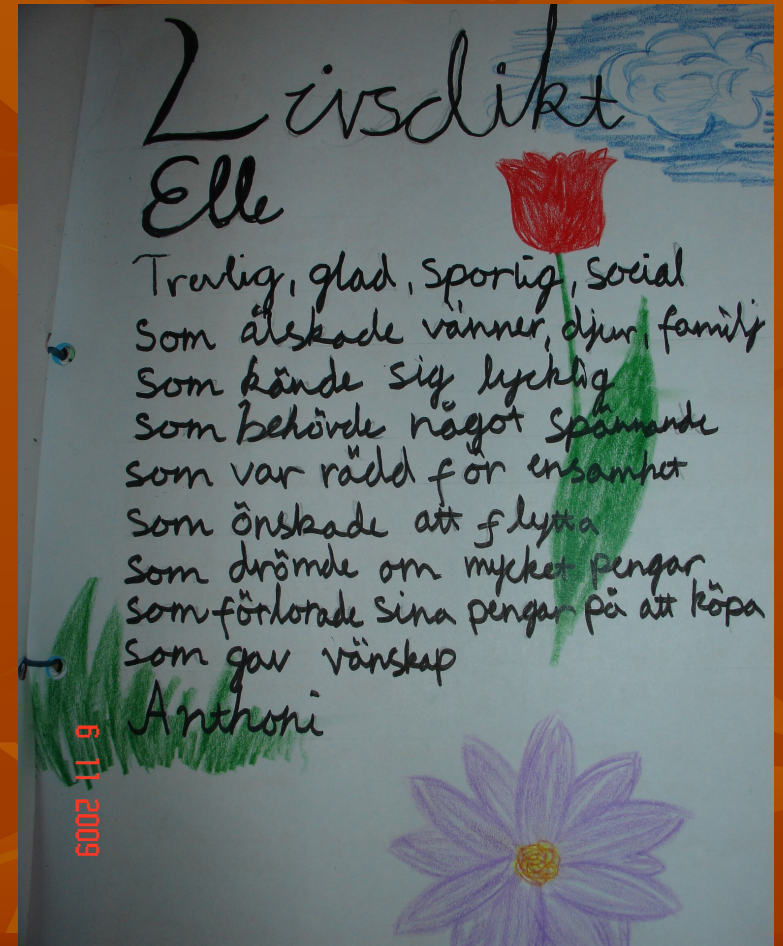 Livsdikt
Elle
Trevlig, glad, Sportig, social
Som älskade vänner, djur, familj
Som kände sig lycklig
Som behövde något spännande
som var rädd för ensamhet
Som önskade att flytta
Som drömde om mycket pengar
som förlorade sina pengar på att köpa
Som gav vänskap
Anthoni
6 11 2009